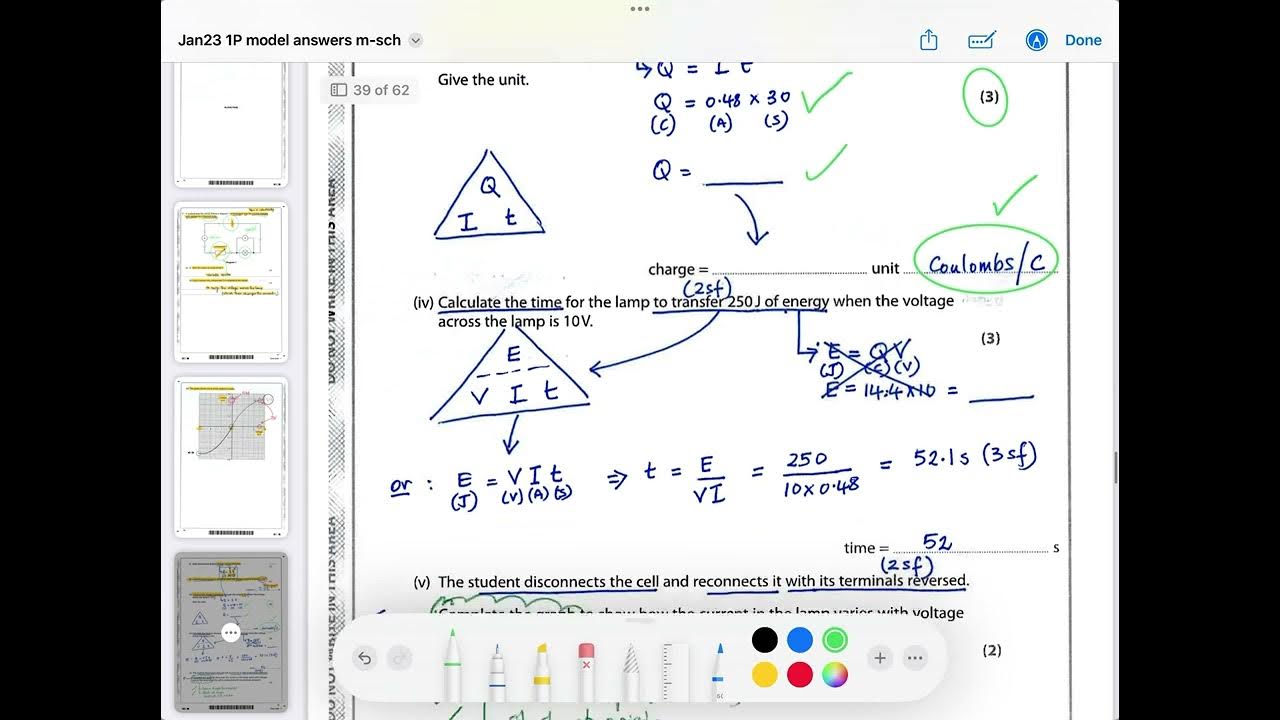 Jan23 1P model answers m-sch
Done
39 of 62
Give the unit.
↳ Q = I t
Q = 0.48 x 30
(C) (A) (S)
(3)
Q =
Q
I t
charge = unit Coulombs/C
(2sf)
(iv) Calculate the time for the lamp to transfer 250 J of energy when the voltage
across the lamp is 10 V.
(3)
E
V I t
E = QV
(J) (C) (V)
E = 14.4 x 10 =
or : E = V I t ⇒ t = E/VI = 250/10 x 0.48 = 52.1 s (3sf)
(J) (V) (A) (S)
time = 52 s
(2sf)
(v) The student disconnects the cell and reconnects it with its terminals reversed.
Complete the graph to show how the current in the lamp varies with voltage
(2)